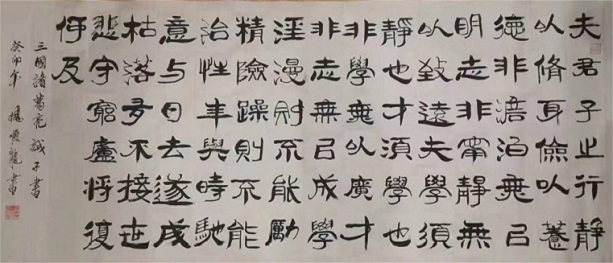 夫君子之行靜
以脩身儉以養
德非澹泊無以
明志非寧靜無
以致遠夫學須
靜也才須學也
非學無以廣才
非志無以成學
淫漫則不能勵
精險躁則不能
治性年與時馳
意与日去遂成
枯落多不接世
悲守窮廬將復
何及
三國諸葛亮誡子書
癸卯年楊龍書